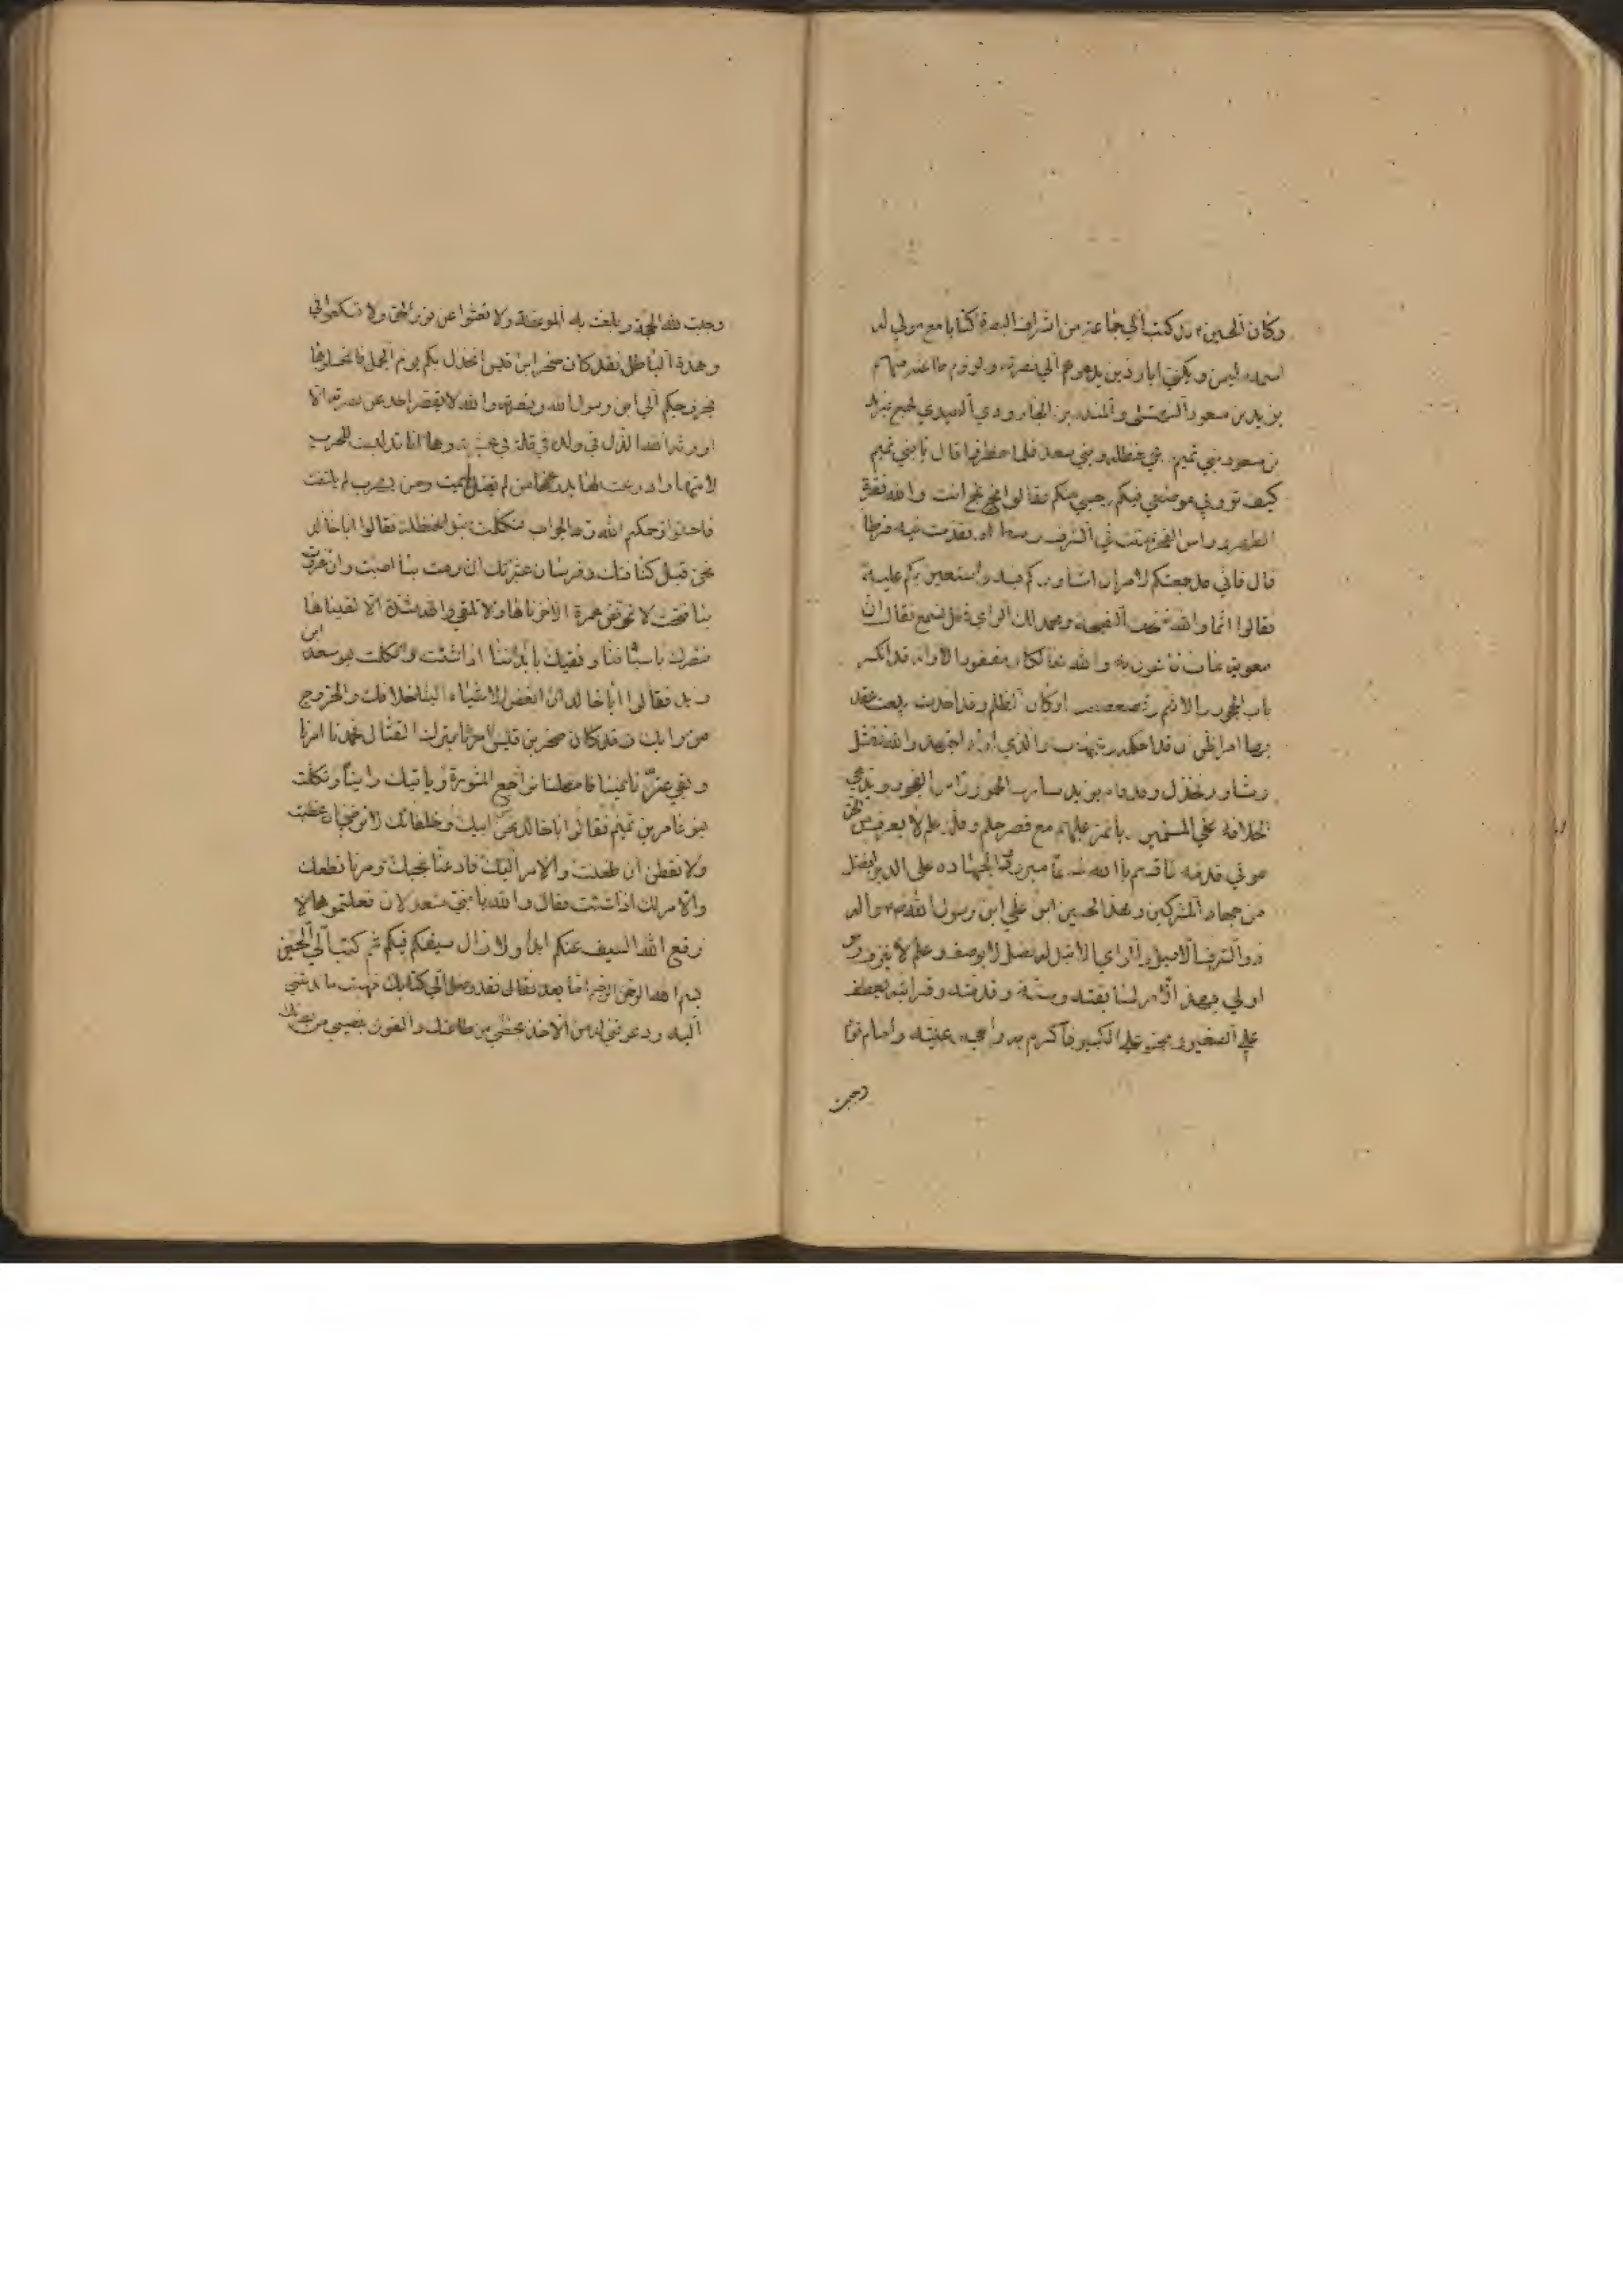 وكان الحسين قد كتب الي جماعة من اشراف البصرة كتابا مع مولي له
اسمه سليمن ويكني ابا رزين يدعوهم الي نصرته ولزوم طاعته منهم
يزيد بن مسعود النهشلي والمنذر بن الجارودي العبدي فجمع يزيد
بن مسعود بني تميم وبني حنظله وبني سعد فلما حضروا قال يا بني تميم
كيف تروني موضعي فيكم وحسبي منكم فقالوا بخ بخ انت والله فقرة
الظهر وراس الفخر حللت في الشرف وسطا وتقدمت فيه فرطا
قال فاني قد جمعتكم لامر ان اشاوركم فيه واستعين بكم عليه
فقالوا انما والله نمنحك النصيحة ونحمد لك الراي فقل نسمع فقال ان
معوية مات فاهون به والله هالكا ومفقودا الا وانه قد انكسر
باب الجور والاثم وتضعضعت اركان الظلم وقد احدث بيعة عقد
بها امرا ظن ان قد احكمه وهيهات والذي اراد اجتهد والله ففشل
وشاور فخذل وقد قام يزيد شارب الخمور وراس الفجور ويدعي
الخلافة علي المسلمين ويتامر عليهم مع قصر حلم وقلة علم لا يعرف من الحق
موطي قدمه فاقسم بالله قسما مبرورا لجهاده علي الدين افضل
من جهاد المشركين وهذا الحسين ابن علي ابن رسول الله
ذو الشرف الاصيل والراي الاثيل له فضل لا يوصف وعلم لا ينزف وهو
اولي بهذا الامر لسابقته وسنه وقدمته وقرابته يعطف
علي الصغير ويحنو علي الكبير فاكرم به راعي رعيته وامام قوم
وجبت
وجبت لله الحجة وبلغت به الموعظة ولا تعشوا عن نور الحق ولا تسكعوا في
وهدة الباطل فقد كان صخر ابن قيس انخذل بكم يوم الجمل فاغسلوها
بخروجكم الي ابن رسول الله ونصرته والله لا يقصر احد عن نصرته الا
اورثه الله الذل في ولده والقلة في عشيرته وها انا قد لبست للحرب
لامتها وادرعت لها بدرعها من لم يقتل يمت ومن يهرب لم يفلت
فاحسنوا رحمكم الله رد الجواب فتكلمت بنو حنظلة فقالوا ابا خالد
نحن نبل كنانتك وفرسان عشيرتك ان رميت بنا اصبت وان غزوت
بنا فتحت لا تخوض غمرة الا خضناها ولا تلقي والله شدة الا لقيناها
ننصرك باسيافنا ونقيك بابداننا اذا شئت وتكلمت بنو سعد ابن
زيد فقالوا ابا خالد ان ابغض الاشياء الينا خلافك والخروج
من رايك وقد كان صخر بن قيس امرنا بترك القتال فحمدنا امرنا
وبقي عزنا فينا فامهلنا نراجع المشورة وياتيك راينا وتكلمت
بنو عامر بن تميم فقالوا ابا خالد نحن بنو ابيك وحلفائك لا نرضي ان غضبت
ولا نقطن ان ظعنت والامر اليك فادعنا نجبك ومرنا نطعك
والامر لك اذا شئت فقال والله يا بني سعد لان فعلتموها لا
رفع الله السيف عنكم ابدا ولا زال سيفكم فيكم ثم كتب الي الحسين
بسم الله الرحمن الرحيم اما بعد فقد وصل الي كتابك وفهمت ما ندبتني
اليه ودعوتني له من الاخذ بحظي من طاعتك والفوز بنصيبي من نصرتك